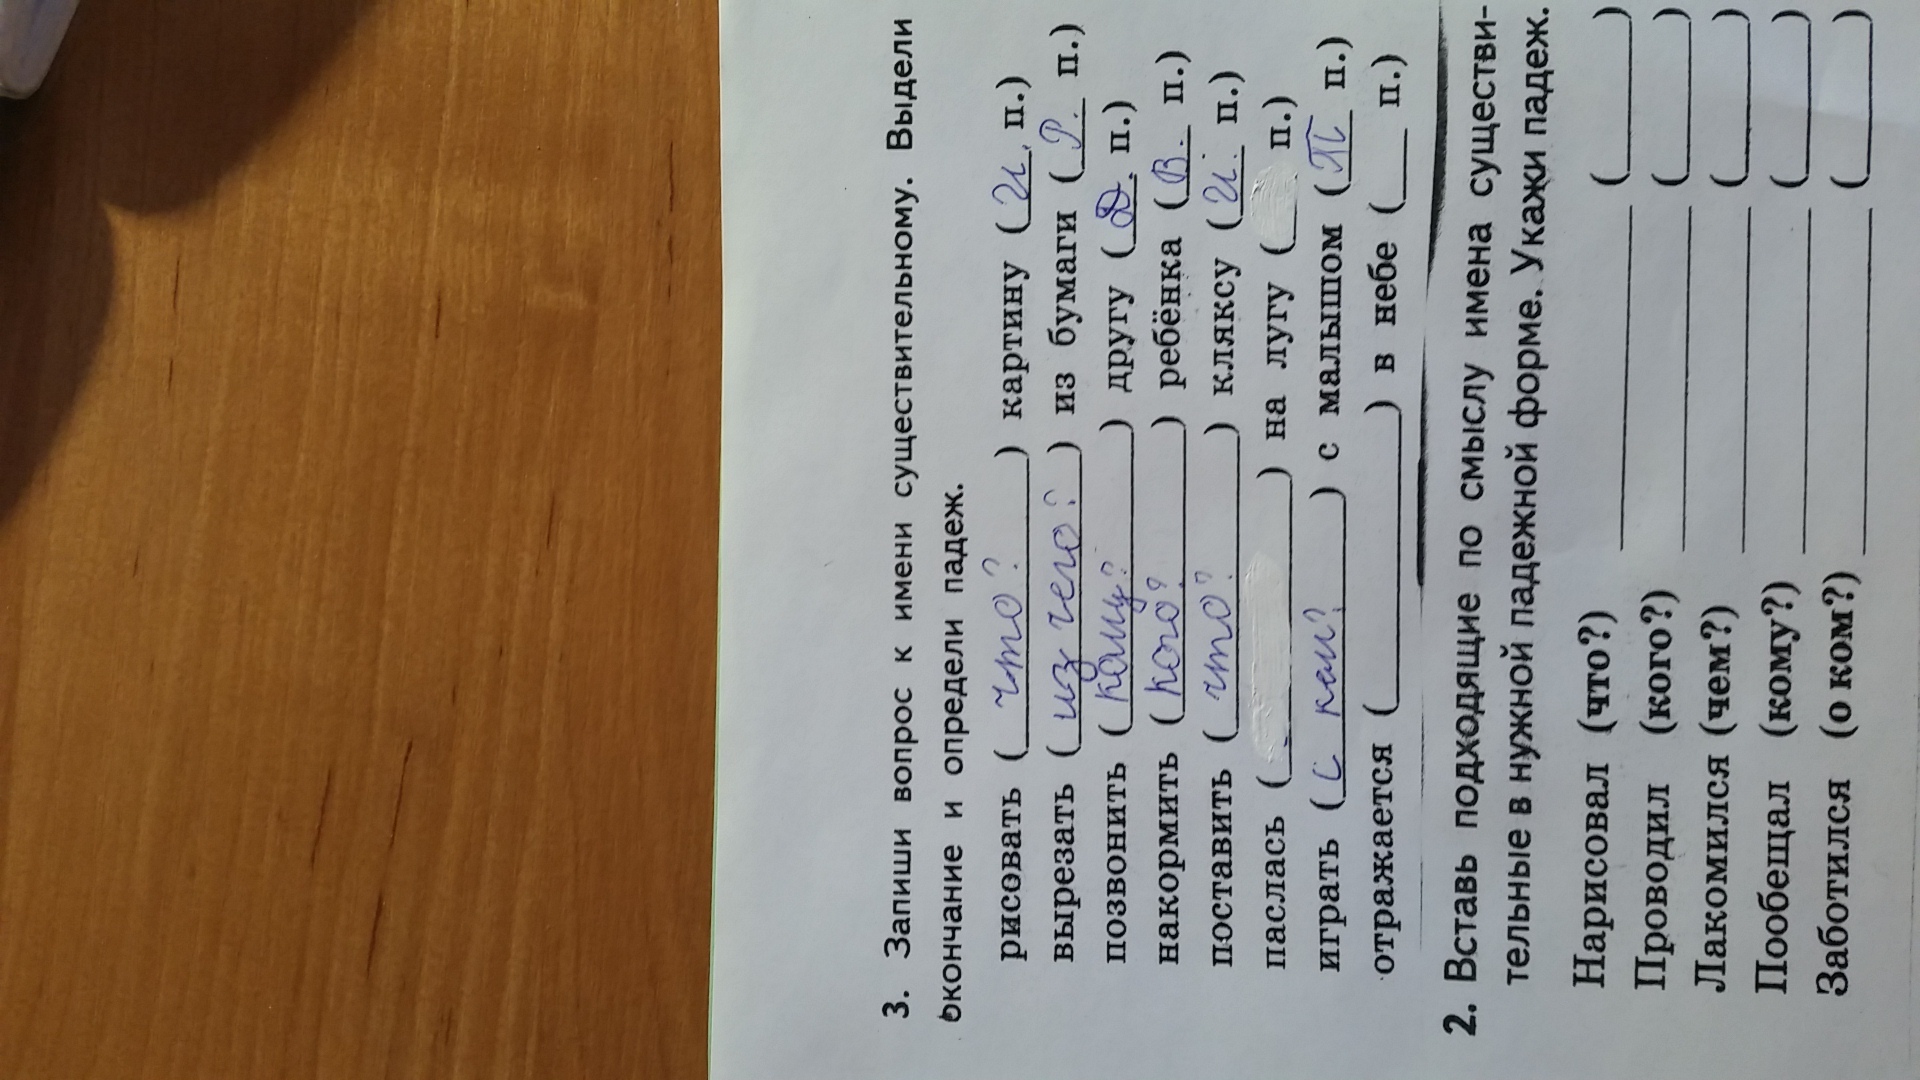 3. Запиши вопрос к имени существительному. Выдели
окончание и определи падеж.
рисовать ( что? ) картину ( И. п.)
вырезать ( из чего? ) из бумаги ( Р. п.)
позвонить ( кому? ) другу ( Д. п.)
накормить ( кого? ) ребёнка ( В. п.)
поставить ( что? ) кляксу ( И. п.)
паслась (____) на лугу (____ п.)
играть ( с кем? ) с малышом ( П п.)
отражается (____) в небе (____ п.)
2. Вставь подходящие по смыслу имена существи-
тельные в нужной падежной форме. Укажи падеж.
Нарисовал (что?) ____ (____)
Проводил (кого?) ____ (____)
Лакомился (чем?) ____ (____)
Пообещал (кому?) ____ (____)
Заботился (о ком?) ____ (____)